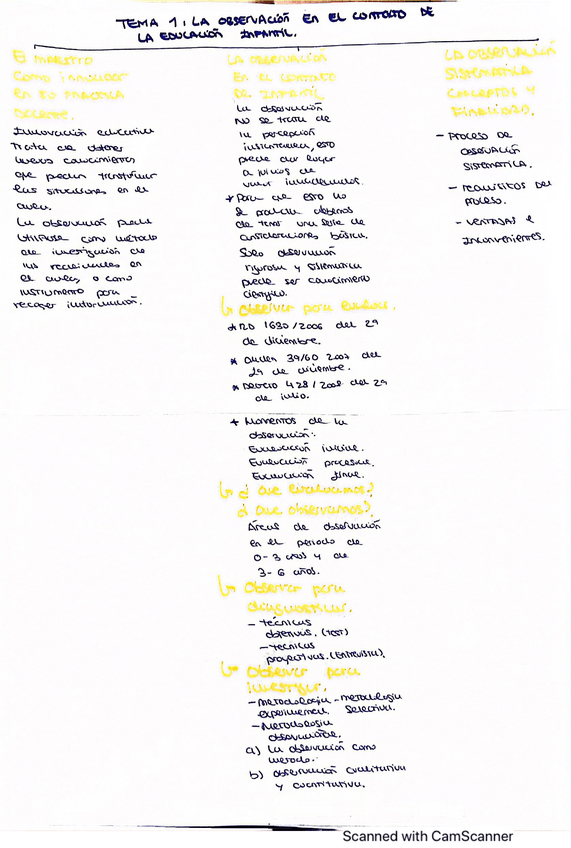 TEMA 1: LA OBSERVACIÓN EN EL CONTEXTO DE
LA EDUCACIÓN INFANTIL.
El MAESTRO
Como innovador
EN SU PRÁCTICA
DOCENTE.
Innovación educativa
Trata de obtener
nuevos conocimientos
que puedan transformar
las situaciones en el
aula.
La observación puede
utilizarse como método
de investigación de
las realidades en
el aula, o como
instrumento para
recoger información.
LA OBSERVACIÓN
EN EL CONTEXTO
DE INFANTIL
La observación
no se trata de
la percepción
esto
puede dar lugar
a juicios de
valor
* Para que esto no
se produzca debemos
de tener una serie de
consideraciones básicas.
Solo observación
rigurosa y sistemática
puede ser conocimiento
científico.
↳ Observar para evaluar.
* RD 1630/2006 del 29
de diciembre.
* Orden 39/60 2007 del
29 de diciembre.
* Decreto 428/2008 del 29
de julio.
* Momentos de la
observación:
Evaluación inicial.
Evaluación procesual.
Evaluación final.
↳ ¿Que Evaluamos?
¿Que observamos?
Áreas de observación
en el periodo de
0-3 años y de
3-6 años.
↳ Observar para
diagnosticar.
- Técnicas
objetivas. (TEST)
- Técnicas
proyectivas. (ENTREVISTA).
↳ Observar para
investigar.
- Metodología - metodología
experimental. selectiva.
- Metodología
observacional.
a) La observación como
método.
b) Observación cualitativa
y cuantitativa.
LA OBSERVACIÓN
SISTEMÁTICA
CONCEPTOS Y
FINALIDAD.
- PROCESO DE
OBSERVACIÓN
SISTEMATICA.
- REQUISITOS DEL
PROCESO.
- VENTAJAS E
INCONVENIENTES.
Scanned with CamScanner